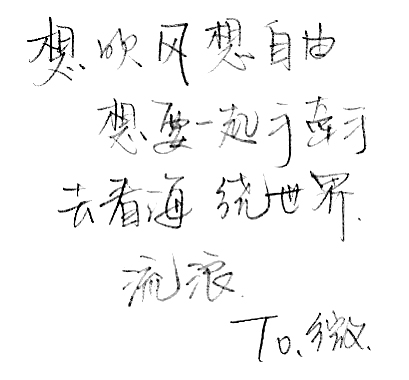 想吹风想自由
想要一起手牵手
去看海 绕世界.
流浪.
To.微.